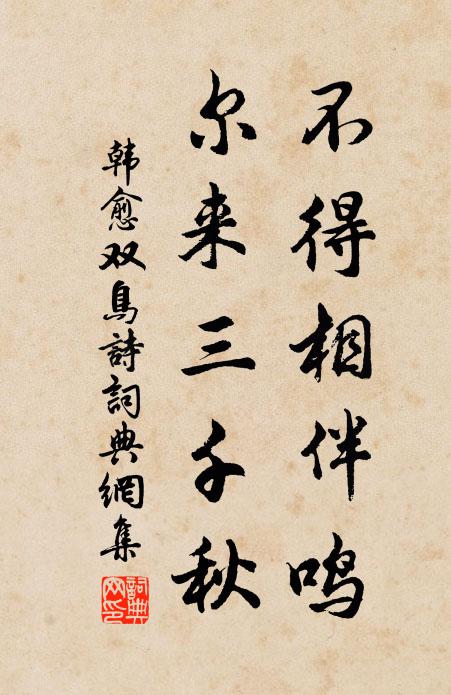 不得相伴鸣
尔来三千秋
韩愈双鸟詩詞典網集
詞典
网印